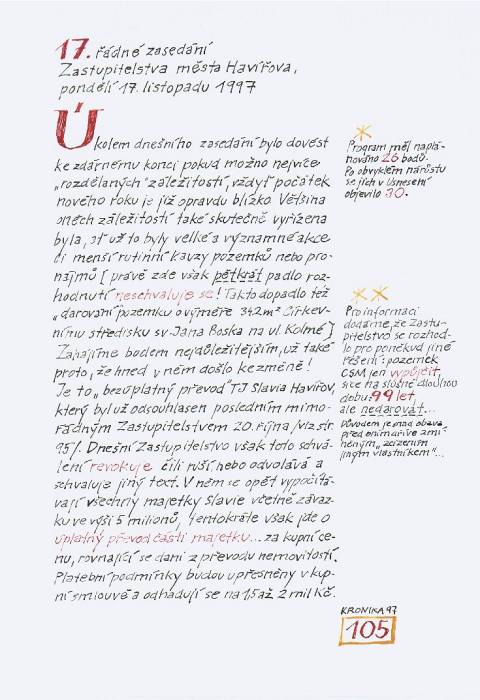 17. řádné zasedání
Zastupitelstva města Havířova,
pondělí 17. listopadu 1997
Úkolem dnešního zasedání bylo dovést
ke zdárnému konci pokud možno nejvíce
„rozdělaných" záležitostí, vždyť počátek
nového roku je již opravdu blízko. Většina
oněch záležitostí také skutečně vyřízena
byla, ať už to byly velké a významné akce
či menší rutinní kauzy pozemků nebo pro-
nájmů [právě zde však pětkrát padlo roz-
hodnutí neschvaluje se! Takto dopadlo též
„darování pozemku o výměře 342 m² Církev-
nímu středisku sv. Jana Boska na ul. Kolmé]
Zahajíme bodem nejdůležitějším, už také
proto, že hned v něm došlo ke změně!
Je to „bezúplatný převod" TJ Slavia Havířov,
který byl už odsouhlasen posledním mimo-
řádným Zastupitelstvem 20. října /viz str.
95/. Dnešní Zastupitelstvo však toto schvá-
lení revokuje čili ruší, nebo odvolává a
schvaluje jiný text. V něm se opět vypočítá-
vají všechny majetky Slavie včetně závaz-
ků ve výši 5 milionů, tentokráte však jde o
úplatný převod části majetku... za kupní ce-
nu, rovnající se dani z převodu nemovitostí.
Platební podmínky budou upřesněny v kup-
ní smlouvě a odhadují se na 1,5 až 2 mil Kč.
*
Program měl naplá-
nováno 26 bodů.
Po obvyklém nárůstu
se jich v Usnesení
objevilo 30.
**
Pro informaci
dodáme, že Zastu-
pitelstvo se rozhod-
lo pro poněkud jiné
řešení: pozemek
CSM jen vypůjčit,
sice na slušně dlouhou
dobu: 99 let,
ale nedarovat...
Důvodem je snad obava
před oním dříve zmí-
něným „zařízením
jiným vlastníkem"...
KRONIKA 97
105